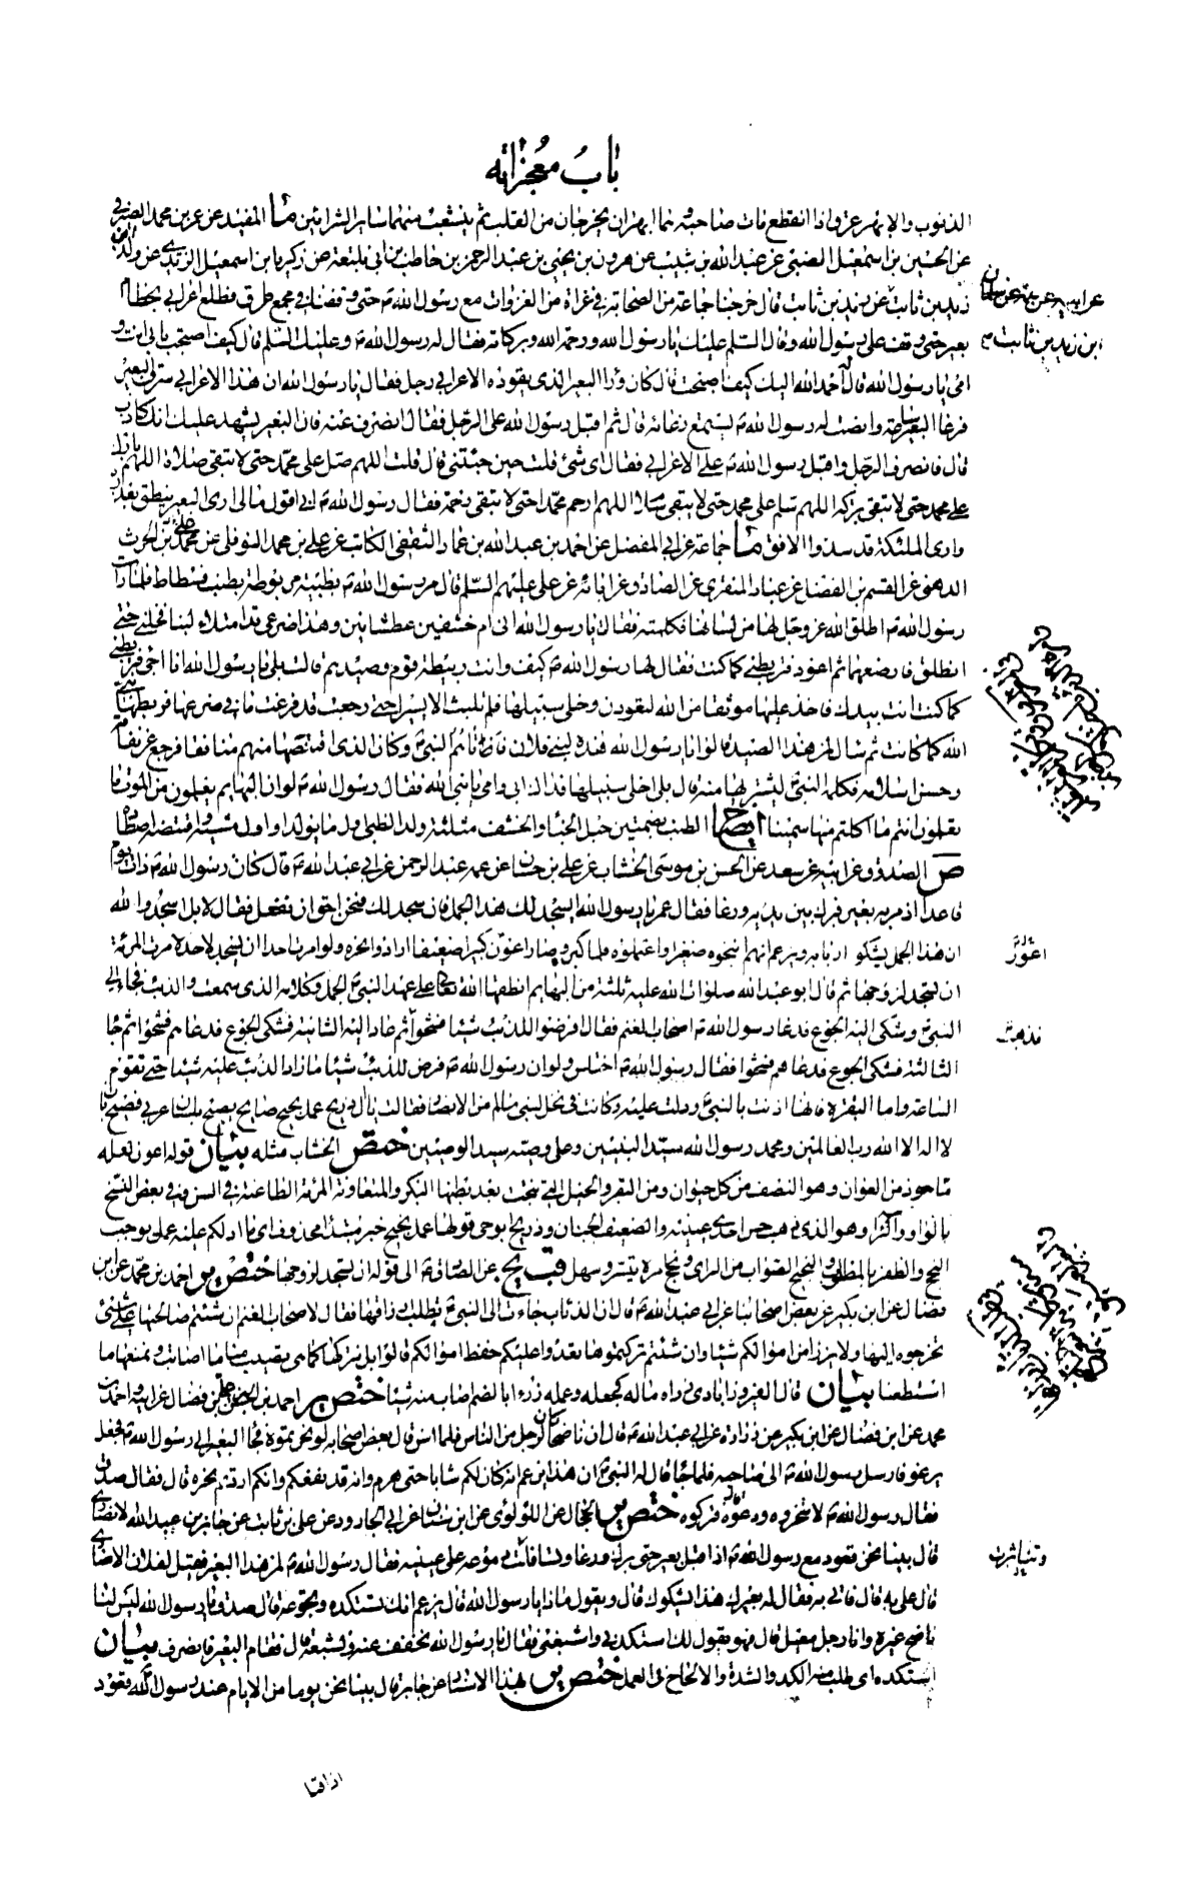 باب معجزاته
الذنوب والابهر عرق اذا انقطع مات صاحبه وهما ابهران يخرجان من القلب ثم يتشعب منهما ساير الشرائين ما المفيد عن عمر بن محمد الصيرفي
عن الحسين بن اسمعيل الضبي عن عبدالله بن شبيب عن هرون بن يحيى بن عبد الرحمن بن حاطب بن ابي بلتعة عن زكريا بن اسمعيل الزيدي عن
زيد بن ثابت عن زيد بن ثابت قال خرجنا جماعة من الصحابة في غزاة من الغزوات مع رسول الله ص حتى وقفنا في مجمع طرق فطلع اعرابي بخطام
بعير حتى وقف على رسول الله وقال السلم عليك يا رسول الله ورحمة الله وبركاته فقال له رسول الله ص وعليك السلم قال كيف اصبحت بابي انت و
امي يا رسول الله قال له احمد الله اليك كيف اصبحت قال كان وراء البعير الذي يقوده الاعرابي رجل فقال يا رسول الله ان هذا الاعرابي سرق البعير
فرغا البعير ساعة وانصت له رسول الله ص ليستمع رغائه قال ثم اقبل رسول الله على الرجل فقال انصرف عنه فان البعير يشهد عليك انك كاذب
قال فانصرف الرجل واقبل رسول الله ص على الاعرابي فقال اي شئ قلت حين جئتني قال قلت اللهم صل على محمد حتى لا تبقى صلاة اللهم بارك
على محمد حتى لا تبقى بركة اللهم سلم على محمد حتى لا يبقى سلام اللهم ارحم محمدا حتى لا تبقى رحمة فقال رسول الله ص اني اقول مالي ارى البعير ينطق بعذره
وارى الملئكة قد سدوا الافق ما جماعة عن ابي المفضل عن احمد بن عبدالله بن عمار الثقفي الكاتب عن علي بن محمد النوفلي عن محمد بن الحرث
عن القسم بن الفضل عن عباد المنقري عن الصادق عن ابائه عن علي عليهم السلم قال مر رسول الله ص بظبية مربوطة بطنب فسطاط فلما رات
رسول الله ص اطلق الله عز وجل لها من لسانها فكلمته فقالت يا رسول الله اني ام خشفين عطشانين وهذا ضرعي قد امتلاء لبنا فخلني حتى
انطلق فارضعهما ثم اعود فتربطني كما كنت فقال لها رسول الله ص كيف وانت ربيطة قوم وصيدهم قالت بلى يا رسول الله انا اجئ فتربطني
كما كنت انت بيدك فاخذ عليها موثقا من الله لتعودن وخلى سبيلها فلم تلبث الا يسيرا حتى رجعت قد فرغت ما في ضرعها فربطها نبي
الله كما كانت ثم سال لمن هذا الصيد قالوا يا رسول الله هذه لبني فلان فاتاهم النبي ص وكان الذي اقتنصها منهم منافقا فرجع عن نفاقه
وحسن اسلامه فكلمه النبي ليشتريها منه قال بلى اخلي سبيلها فداك ابي وامي يا نبي الله فقال رسول الله ص لو ان البهايم يعلمون من الموت ما
تعلمون انتم ما اكلتم منها سمينا ايضاح الطنب بضمتين حبل الخباء والخشف مثلثة ولد الظبي اول ما يولد او اول مشيه واقتنصه اصطاده
ص الصدوق عن ابيه عن سعد عن الحسن بن موسى الخشاب عن علي بن حسان عن عمه عبد الرحمن عن ابي عبدالله ع قال كان رسول الله ص ذات يوم
قاعدا اذ مر به بعير فبرك بين يديه ورغا فقال عمر يا رسول الله ايسجد لك هذا الجمل فان سجد لك فنحن احق ان نفعل فقال لا بل اسجدوا لله
ان هذا الجمل يشكو اربابه ويزعم انهم انتجوه صغيرا واعتملوه فلما كبر وصار اعون كبيرا ضعيفا ارادوا نحره ولو امرت احدا ان يسجد لاحد لامرت المرئة
ان تسجد لزوجها ثم قال ابو عبدالله صلوات الله عليه ثلثة من البهايم انطقها الله تعالى على عهد النبي ص الجمل وكلامه الذي سمعت والذئب فجاء الى
النبي ص فشكى اليه الجوع فدعا رسول الله ص اصحاب الغنم فقال افرضوا للذئب شيئا فشحوا ثم عاد اليه الثانية فشكى الجوع فدعاهم فشحوا ثم جاء
الثالثة فشكى الجوع فدعاهم فشحوا فقال رسول الله ص اختلس ولو ان رسول الله ص فرض للذئب شيئا ما زاد الذئب عليه شيئا حتى تقوم
الساعة واما البقرة فانها اذنت بالنبي ص ودلت عليه وكانت في نخل لبني سالم من الانصار فقالت يا آل ذريح عمل نجيح صايح يصيح بلسان عربي فصيح بان
لا اله الا الله رب العالمين ومحمد رسول الله سيد النبيين وعلي وصيه سيد الوصيين ختص الخشاب مثله بيان قوله اعون لعله
ماخوذ من العوان وهو النصف من كل حيوان ومن البقر والخيل التي نتجت بعد بطنها البكر والمتعاونة المرئة الطاعنة في السن وفي بعض النسخ
بالواو والراء وهو الذي ذهب حس احدى عينيه والضعيف الجبان وذريح ابو حي قولها عمل نجيح خبر مبتداء محذوف اي ما ادلكم عليه عمل يوجب
النجح والظفر بالمطلوب والنجيح الصواب من الراي ونجح امره تيسر وسهل قب يج عن الصادق ع الى قوله ان تسجد لزوجها ختص ير احمد بن محمد عن ابن
فضال عن ابن بكير عن بعض اصحابنا عن ابي عبدالله ع قال ان الذئاب جاءت الى النبي ص تطلب ارزاقها فقال لاصحاب الغنم ان شئتم صالحتها على شئ
تخرجوه اليها ولا يرزأ من اموالكم شيئا وان شئتم تركتموها بعدوا وعليكم حفظ اموالكم قالوا بل نتركها كما هي تصيب منا ما اصابت ونمنعها ما
استطعنا بيان قال الفيروزآبادي رزأه ماله كجعله وعمله رزءا بالضم اصاب منه شيئا ختص ير احمد بن الحسن بن علي بن فضال عن ابيه واحمد بن
محمد عن ابن فضال عن ابن بكير عن زرارة عن ابي عبدالله ع قال ان ناضحا كان لرجل من الناس فلما اسن قال بعض اصحابه لو نحرتموه فجاء البعير الى رسول الله ص فجعل
يرغو فارسل رسول الله ص الى صاحبه فلما جاء قال له النبي ص ان هذا يزعم انه كان لكم شابا حتى هرم وانه قد نفعكم وانكم اردتم نحره قال فقال صدق
فقال رسول الله ص لا تنحروه ودعوه قال فتركوه ختص ير الحجال عن اللؤلؤي عن ابن سنان عن ابي الجارود عن علي بن ثابت عن جابر بن عبدالله الانصاري
قال بينا نحن قعود مع رسول الله ص اذ اقبل بعير حتى برك ورغا وتسافلت دموعه على عينيه فقال رسول الله ص لمن هذا البعير فقيل لفلان الانصاري
قال علي به قال فاتي به فقال له بعيرك هذا يشكوك قال ويقول ماذا يا رسول الله قال يزعم انك تستكده وتجوعه قال صدق يا رسول الله ليس لنا
ناضح غيره وانا رجل معيل قال فهو يقول لك استكدني واشبعني فقال يا رسول الله نخفف عنه ونشبعه قال فقام البعير فانصرف بيان
استكده اي طلب منه الكد والشدة والالحاح في العمل ختص ير بهذا الاسناد عن جابر قال بينا نحن يوما من الايام عند رسول الله ص قعود
ابن زيد بن ثابت
اعور
فذهبت
وتناثرت
اذ اقبل